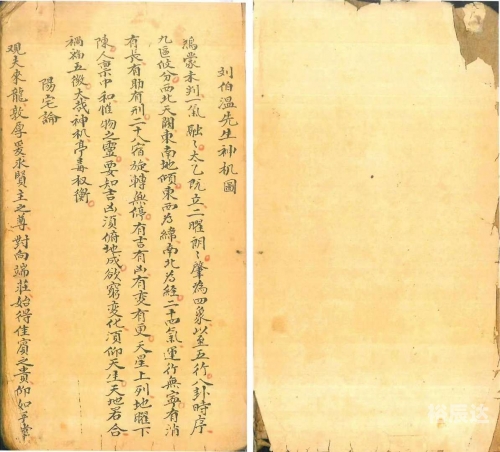 刘伯溫先生神机圖
鴻蒙未判一氣融〻太乙既立二曜朗〻肇為四象以至五行八卦時序
九區攸分西北天關東南地傾東西為緯南北為經二十四氣運行無寧有消
有長有助有刑二十八宿旋轉無停有吉有凶有变有更天星上列地曜下
陳人禀中和催物之靈要知吉凶須俯地成欲窮变化須仰天生天地若合
禍福五徵大哉神机亭毒权衡
陽宅論
观夫來龍敦厚爰求賢主之尊對向端莊始得佳賓之貴仰如